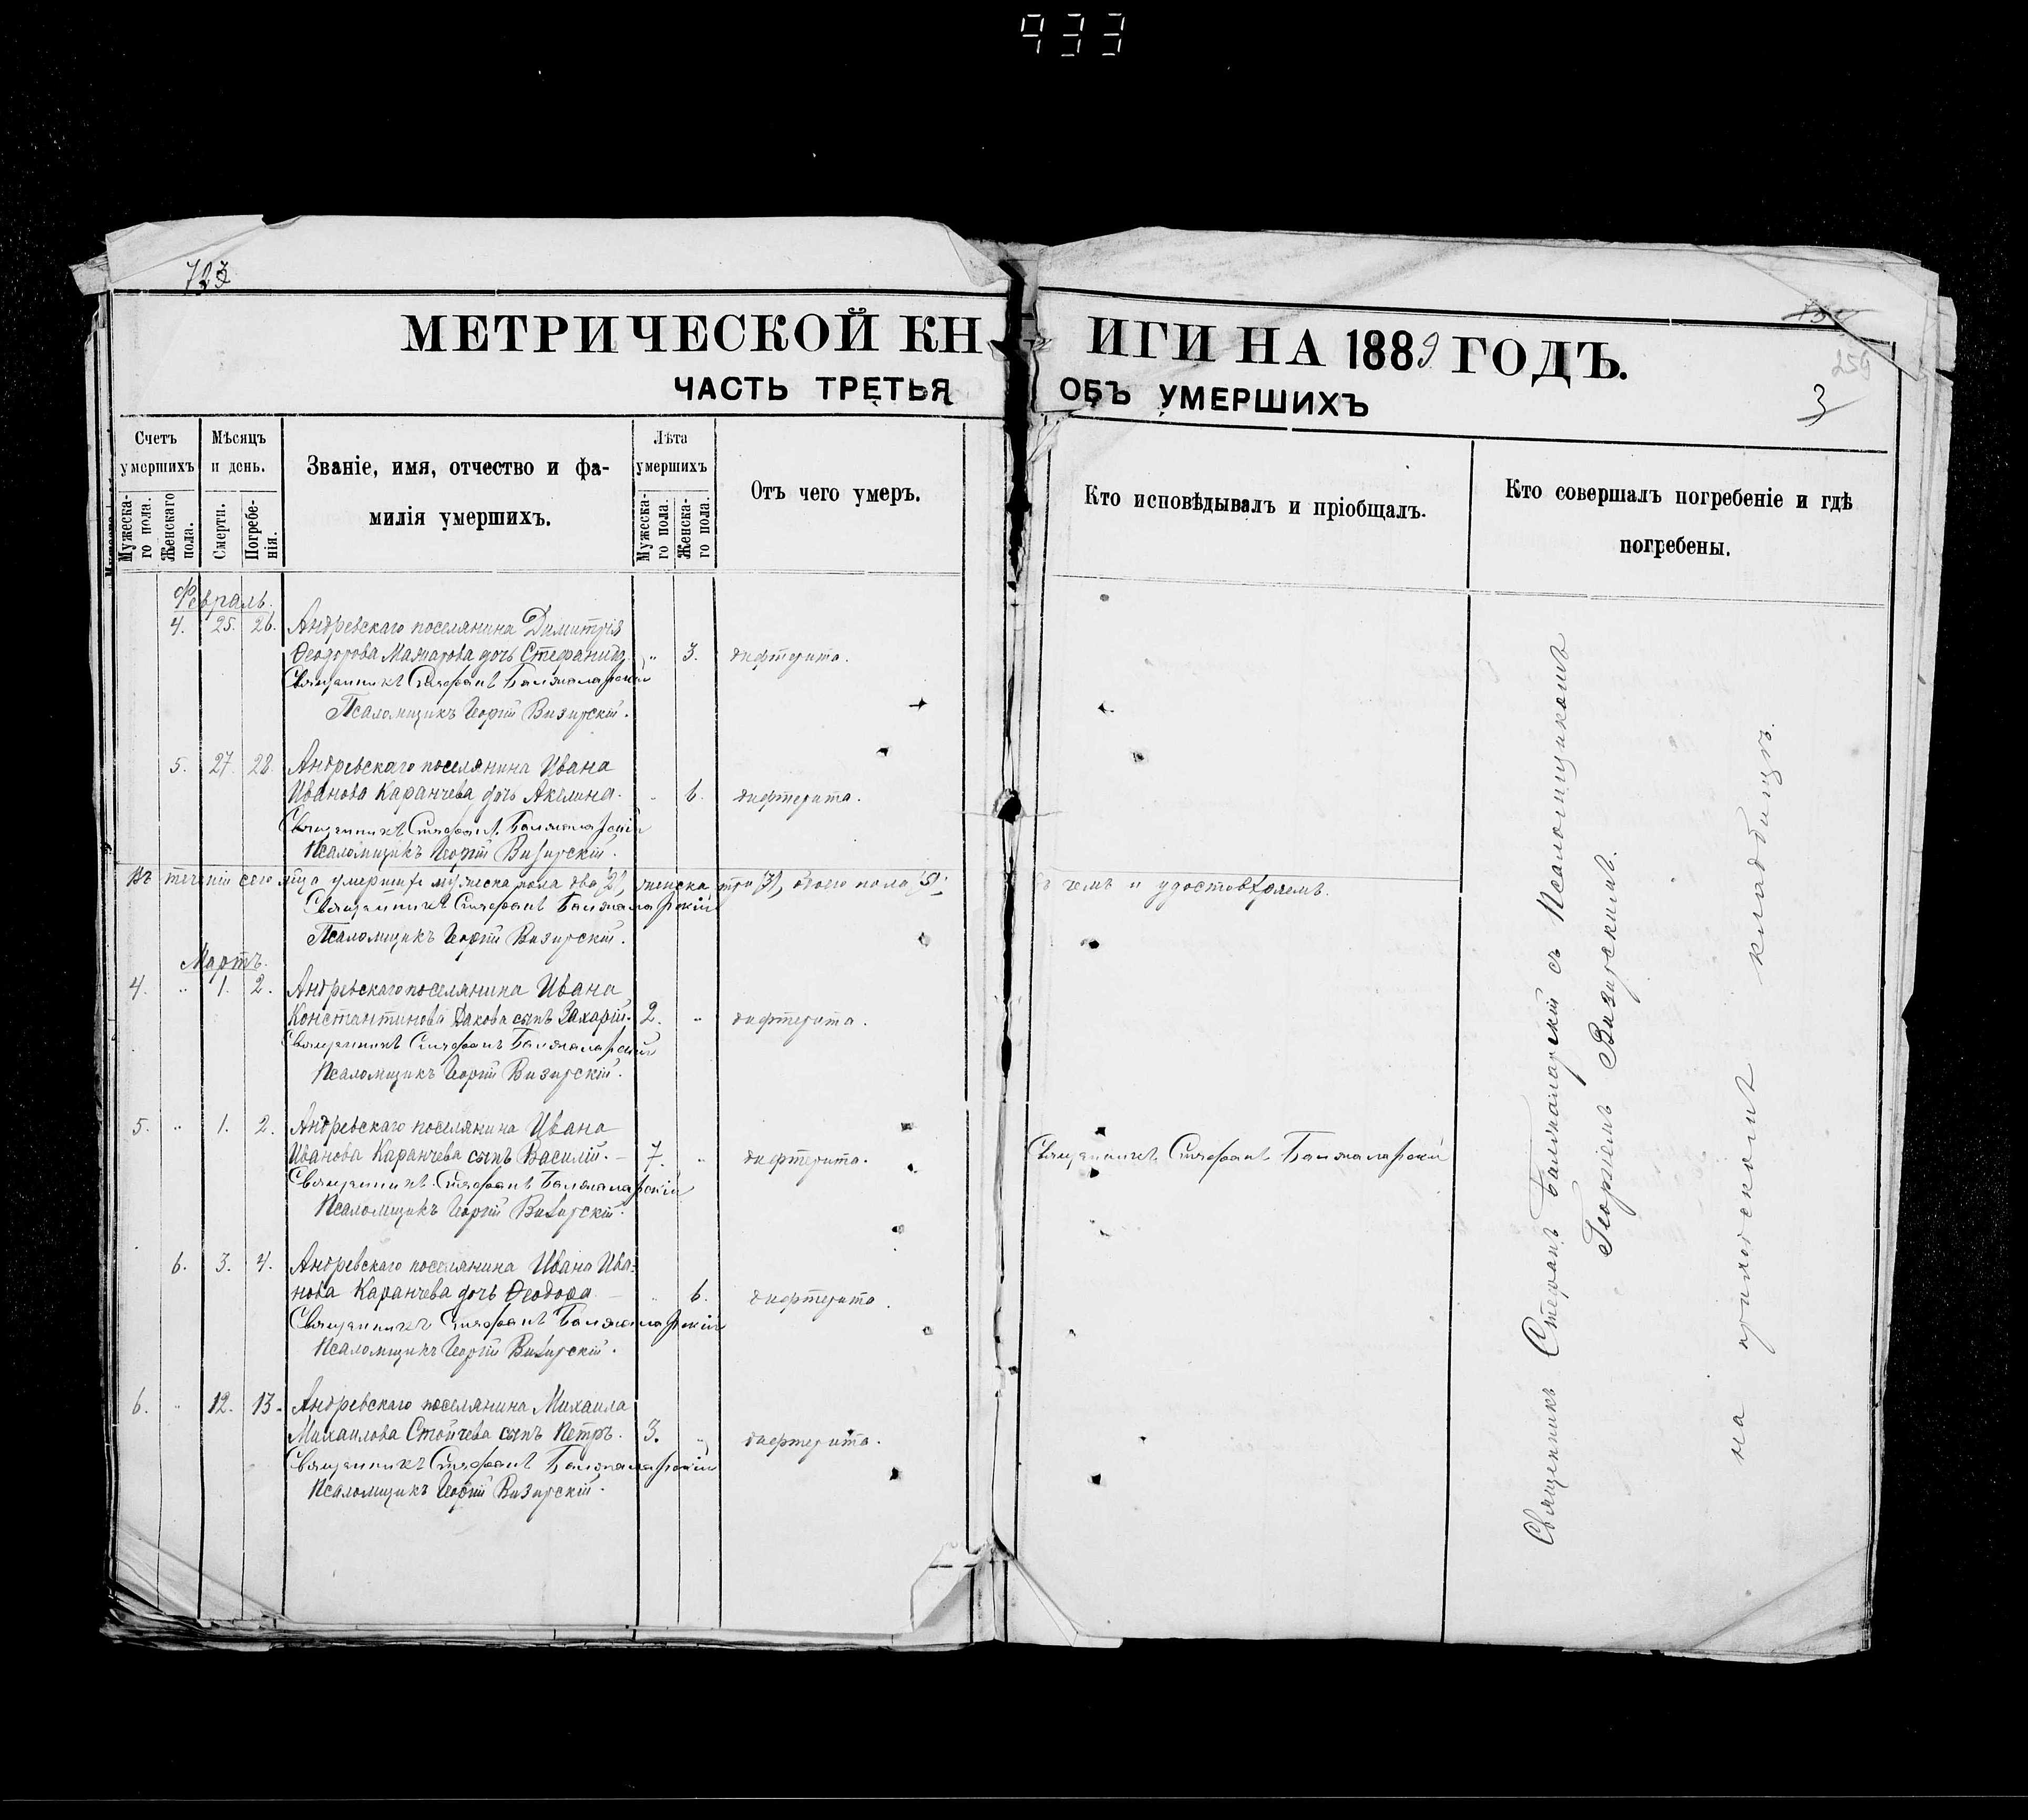 933
723
МЕТРИЧЕСКОЙ КНИГИ НА 1889 ГОДЪ.
ЧАСТЬ ТРЕТЬЯ ОБЪ УМЕРШИХЪ
250
3
Счетъ умершихъ
Мужеска-го пола.
Женскаго пола.
Мѣсяцъ и день.
Смерти.
Погребе-нія.
Званіе, имя, отчество и фа-
милія умершихъ.
Лѣта умершихъ
Мужеска-го пола.
Женска-го пола.
Отъ чего умеръ.
Кто исповѣдывалъ и пріобщалъ.
Кто совершалъ погребеніе и гдѣ
погребены.
Февраль.
4. 25. 26. Андревскаго поселянина Димитрія
Ѳеодорова дочь Стефанида „ 3. дифтерита.
Священникъ Стефанъ Балжаларскій
Псаломщикъ Георгій Визирскій.
5. 27. 28. Андревскаго поселянина Ивана
Иванова Каранчева дочь Акилина. „ 6. дифтерита.
Священникъ Стефанъ Балжаларскій
Псаломщикъ Георгій Визирскій.
Въ теченіи сего м-ца умершихъ мужеска пола два „2", женска три „3", обоего пола „5"; въ чемъ и удостовѣряемъ.
Священникъ Стефанъ Балжаларскій
Псаломщикъ Георгій Визирскій.
Мартъ.
4. „ 1. 2. Андревскаго поселянина Ивана
Константинова Дакова сынъ Захарій. 2. „ дифтерита.
Священникъ Стефанъ Балжаларскій
Псаломщикъ Георгій Визирскій.
5. „ 1. 2. Андревскаго поселянина Ивана
Иванова Каранчева сынъ Василій. 7. „ дифтерита.
Священникъ Стефанъ Балжаларскій
Священникъ Стефанъ Балжаларскій
Псаломщикъ Георгій Визирскій.
6. 3. 4. Андревскаго поселянина Ивана Ива-
нова Каранчева дочь Ѳеодора „ 6. дифтерита.
Священникъ Стефанъ Балжаларскій
Псаломщикъ Георгій Визирскій.
6. „ 12. 13. Андревскаго поселянина Михаила
Михаилова Стойчева сынъ Петръ. 3. „ дифтерита.
Священникъ Стефанъ Балжаларскій
Псаломщикъ Георгій Визирскій.
Священникъ Стефанъ Балжаларскій съ Псаломщикомъ
Георгіемъ Визирскимъ.
на приходскомъ кладбищѣ.